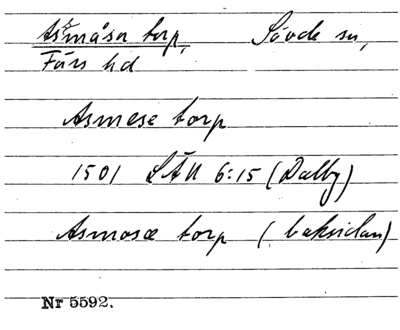 Asmåsa torp, Sövde sn,
Färs hd
Asmese torp
1501 LÄU 6:15 (Dalby)
Asmosæ torp (baksidan)
Nr 5592.